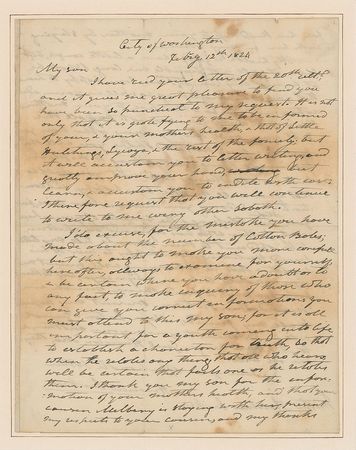 City of Washington
Feby 12th 1824
My son
I have red your letter of the 20th ult.
and it gives me great pleasure to find you
have been so punctual to my requests. It is not
only that it is gratifying to me to be informed
of your, & your mothers health, & that of little
Hutchings, Lyncoya, & the rest of the family, but
it will accustom you to letter writing, and
greatly improve your hand, but
learn, & accustom you to indite with
I therefore request that you will continue
to write to me every other Saboth.
I do excuse, for the mistake you have
made about the number of Cotton Bales;
but this ought to make you more
hereafter, allways to examine for yourself,
& be certain where you have a doubt as to
any fact, to make enquiry of those who
can give you correct information; you
must attend to this my son, for it is all
important for a youth coming into life
to establish a character for truth, so that
when he relates any thing, that all who hears
will be certain that facts are as he relates
them. I thank you my son for the infor-
mation of your mothers health, and that your
cousin is staying with her, present
my respects to your cousin, and my thanks